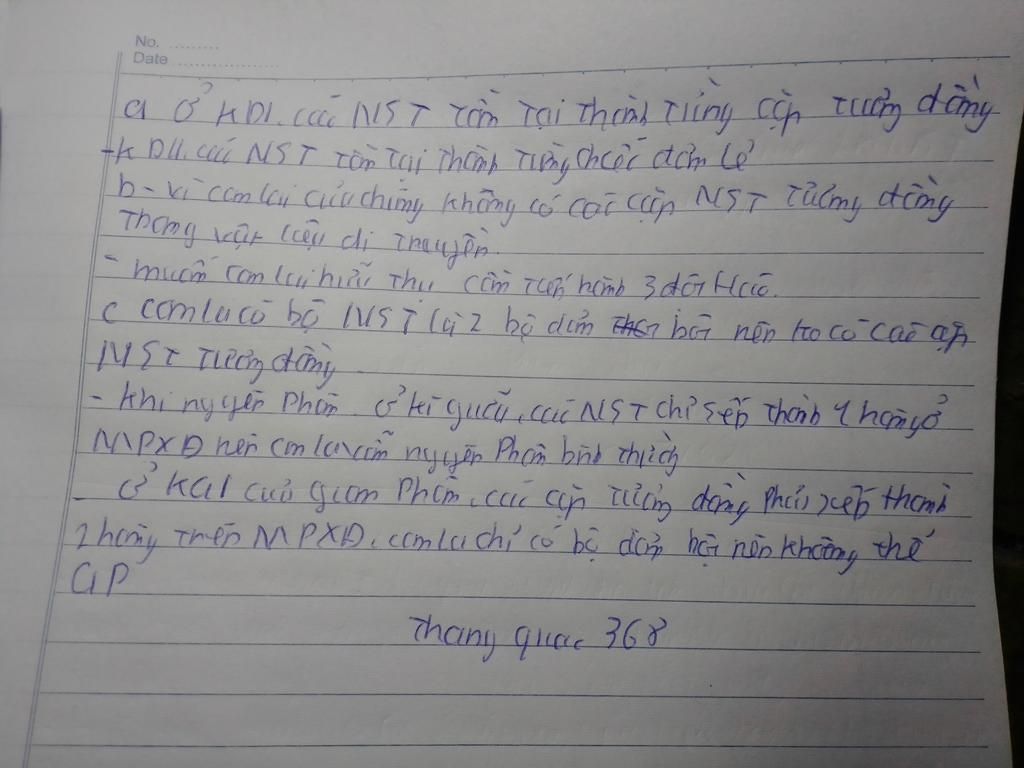 No. ........
Date ..................
a ở KDI. các NST tồn tại thành từng cặp tương đồng
- KDII. các NST tồn tại thành từng chiếc đơn lẻ
b - vì con lai của chúng không có các cặp NST tương đồng
trong vật liệu di truyền.
- muốn con lai hữu thụ cần tiến hành 3 đời Hoá.
c con la có bộ NST là 2 bộ đơn bội nên ko có các cặp
NST tương đồng
- khi nguyên phân ở kì giữa, các NST chỉ sếp thành 1 hàng ở
MPXĐ nên con la vẫn nguyên phân bình thường
- ở KGI của giảm phân, các cặp tương đồng phải xếp thành
2 hàng trên MPXĐ, con la chỉ có bộ đơn bội nên không thể
GP
Thang quac 368